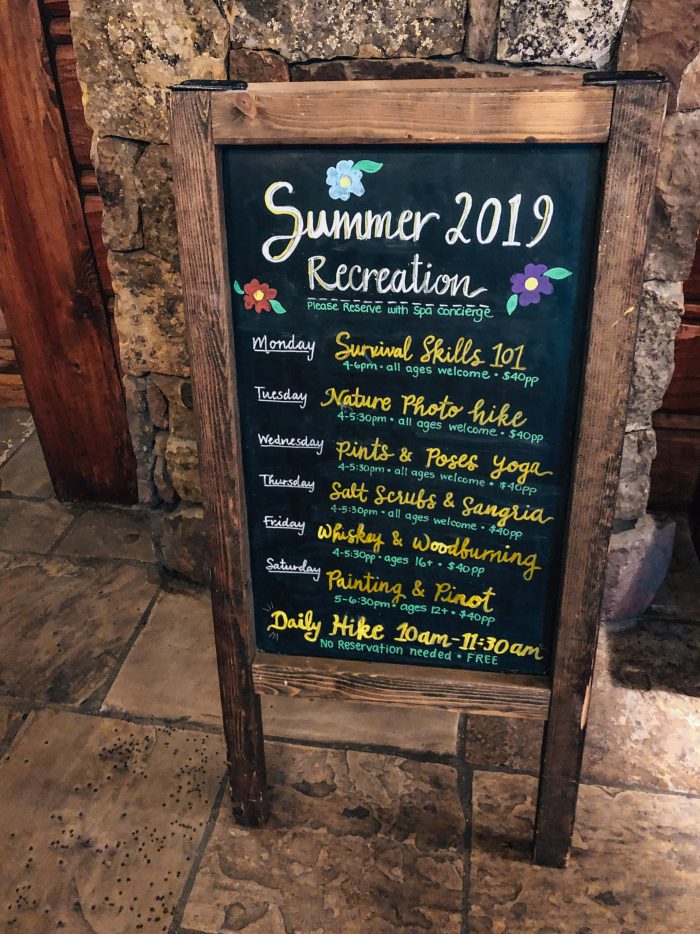 Summer 2019
Recreation
Please Reserve with Spa Concierge
Monday Survival Skills 101
4-6pm • all ages welcome • $40pp
Tuesday Nature Photo hike
4-5:30pm • all ages welcome • $40pp
Wednesday Pints & Poses yoga
4-5:30pm • all ages welcome • $40pp
Thursday Salt Scrubs & Sangria
4-5:30pm • all ages welcome • $40pp
Friday Whiskey & Woodburning
4-5:30pm • ages 16+ • $40pp
Saturday Painting & Pinot
5-6:30pm • ages 12+ • $40pp
Daily Hike 10am-11:30am
No Reservation needed • FREE